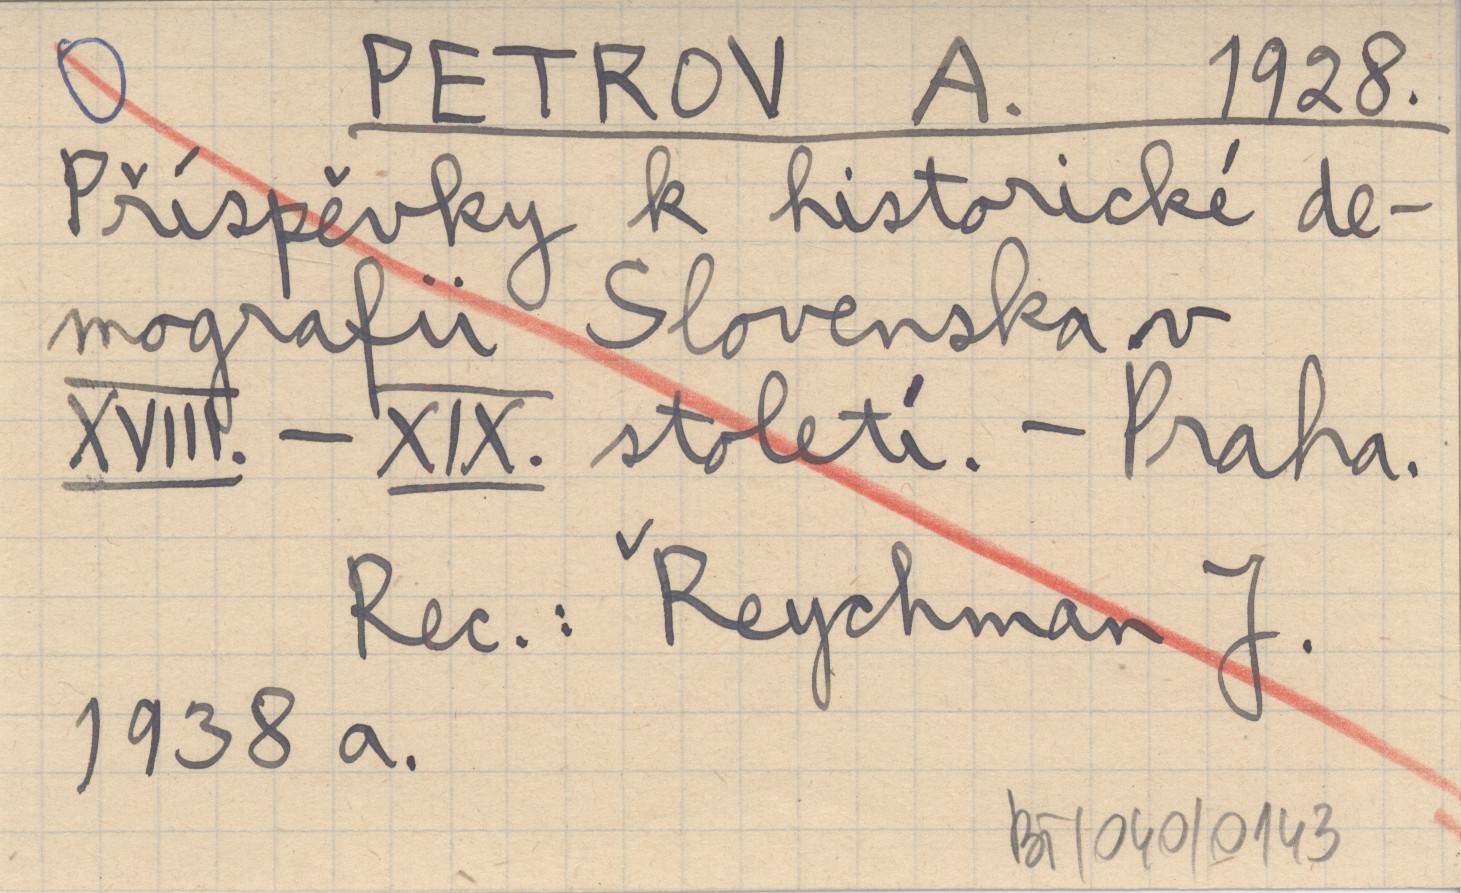 PETROV A. 1928.
Příspěvky k historické de-
mografii Slovenska v
XVIII. – XIX. století. – Praha.
Rec.: ˇReychman J.
1938 a.
BT/040/0143